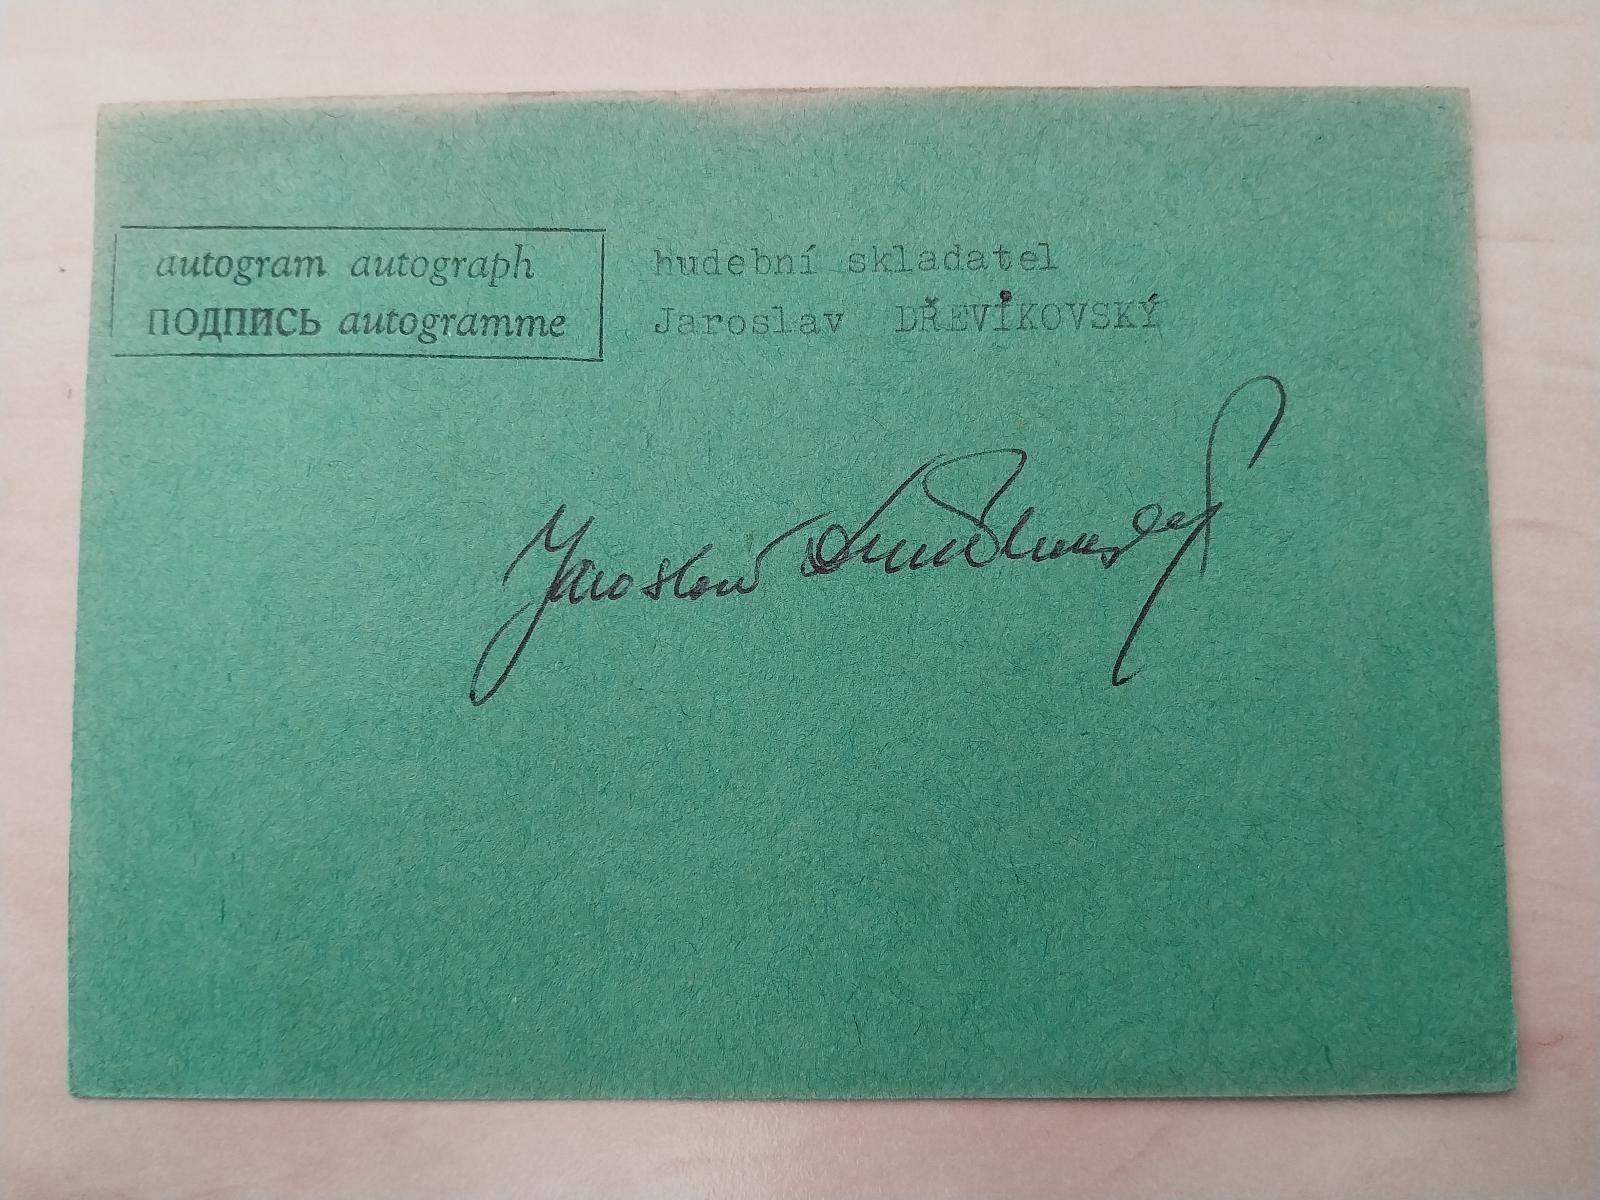 autogram autograph
ПОДПИСЬ autogramme
hudební skladatel
Jaroslav DŘEVÍKOVSKÝ
Jaroslav